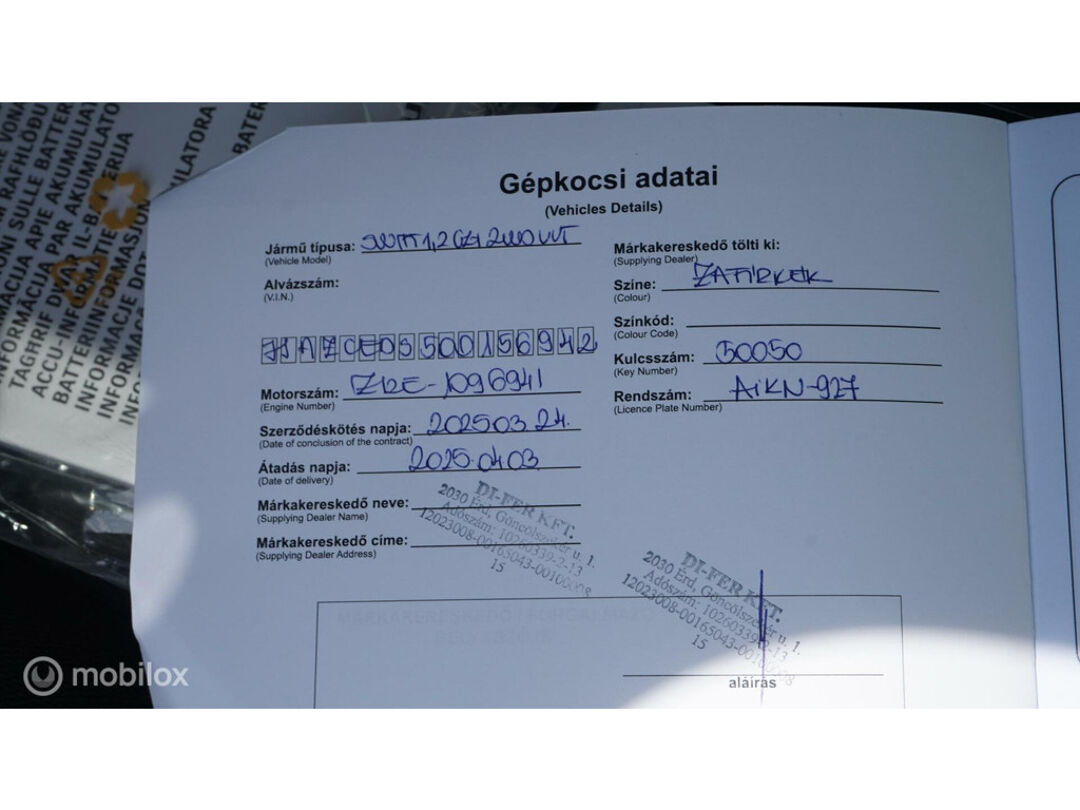 INFORMACIJA APIE AKUMULIAT
TAGHRIF DWAR IL-B
ACCU-INFORMATIE
INFORMACJE DOT
Gépkocsi adatai
(Vehicles Details)
Jármű típusa: SWIFT 1,2 GL+ 2WD VVT
(Vehicle Model)
Alvázszám:
(V.I.N.)
JSAZCEDS500156942
Motorszám: Z12E-1096941
(Engine Number)
Szerződéskötés napja: 2025 03 24.
(Date of conclusion of the contract)
Átadás napja: 2025.04.03
(Date of delivery)
Márkakereskedő neve:
(Supplying Dealer Name)
Márkakereskedő címe:
(Supplying Dealer Address)
DI-FER KFT.
2030 Érd, Göncölszekér u. 1.
Adószám: 10260339-2-13
12023008-00165043-00100008
15
Márkakereskedő tölti ki:
(Supplying Dealer)
Színe: ZAFÍRKÉK
(Colour)
Színkód:
(Colour Code)
Kulcsszám: 50050
(Key Number)
Rendszám: AIKN-927
(Licence Plate Number)
DI-FER KFT.
2030 Érd, Göncölszekér u. 1.
Adószám: 10260339-2-13
12023008-00165043-00100008
15
aláírás
mobilox